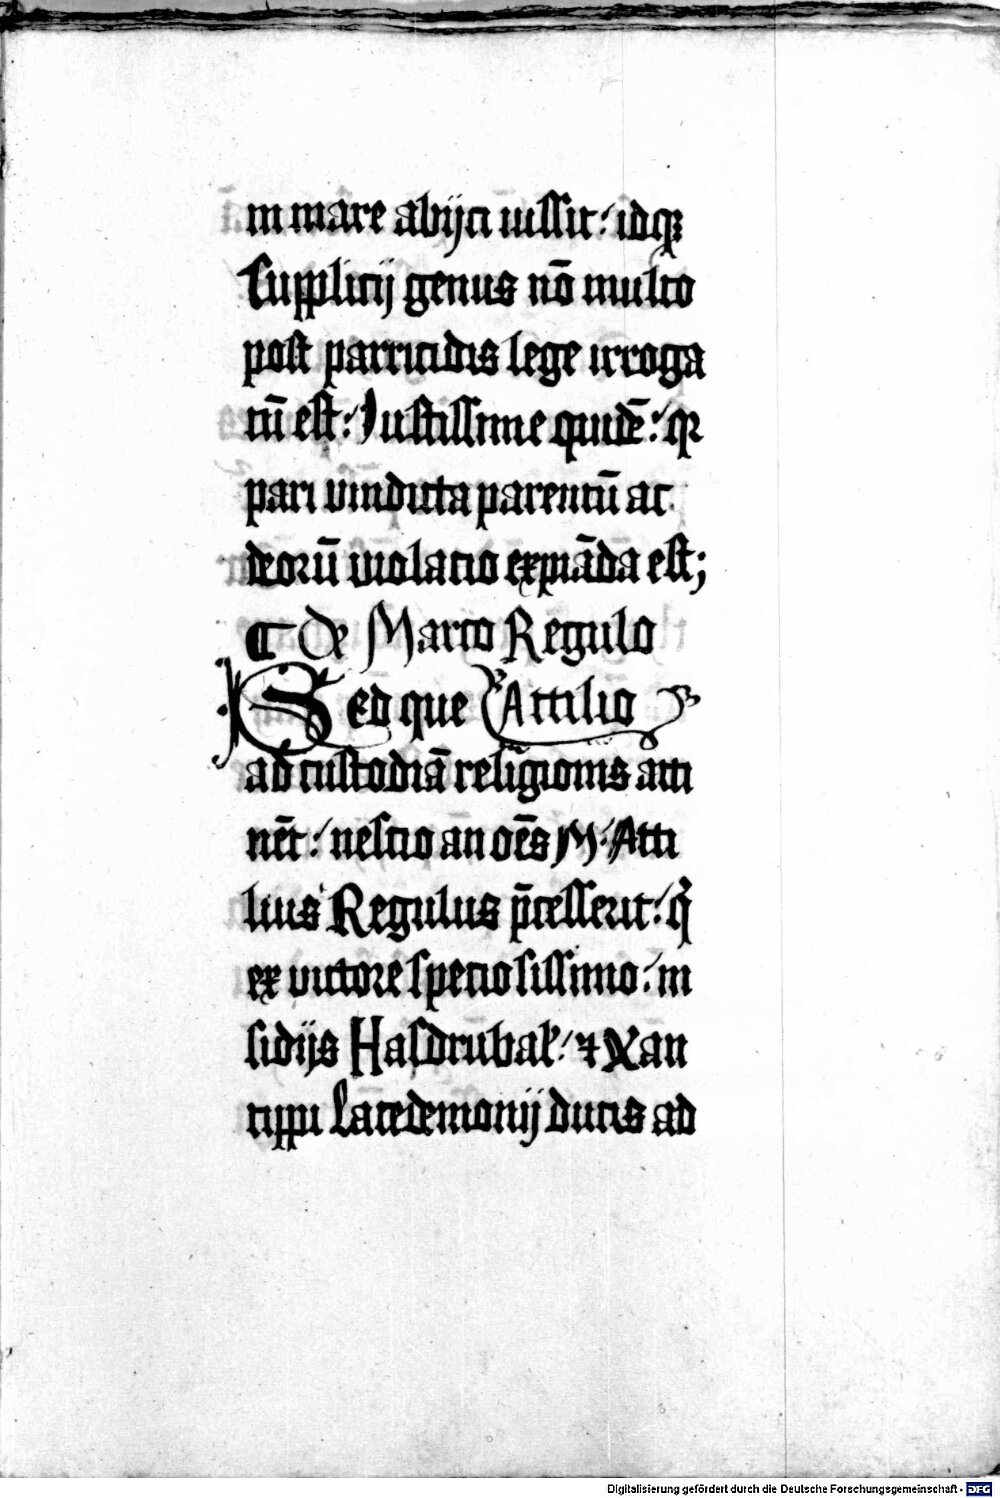 in mare abijci iussit: idqꝫ
Supplicij genus nō multo
post parricidis lege irroga
tū est: Iustissime quidē: qꝛ
pari vindicta parentū ac
deorū violatio expiāda est;
¶ De Marco Regulo
Sed que Attilio
ad custodiā religionis atti
nēt: nescio an oēs M. Atti
lius Regulus p̄cesserit: qͥ
ex victore speciosissimo: in
sidijs Hasdrubal̛: ⁊ Xan
tippi Lacedemonij ducis ad
Digitalisierung gefördert durch die Deutsche Forschungsgemeinschaft - DFG